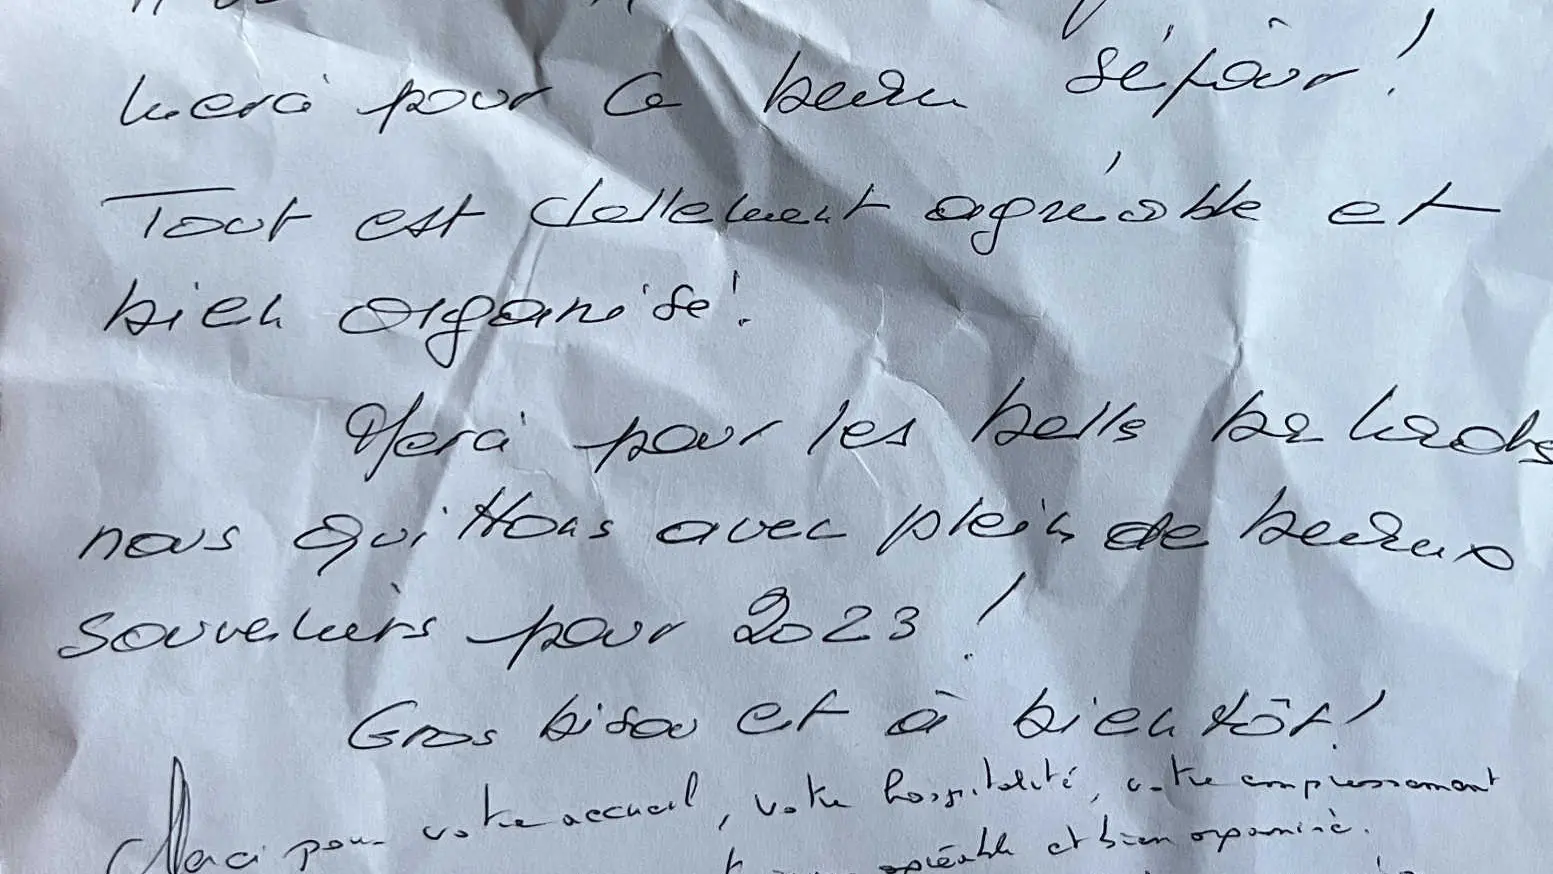 Merci pour ce beau séjour!
Tout est tellement agréable et
bien organisé!
Merci pour les belles
nous quittons avec plein de beaux
souvenirs pour 2023!
Gros bisou et à bientôt!
Merci pour votre accueil, votre hospitalité, votre empressement
agréable et bien organisé.